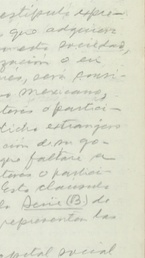 estipula expre-
que adquieran
mento sociedad,
ización o en
nés, será consi-
mo mexicano,
terés o partici-
dicho extranjero
ción de mgo-
que faltare a
terés o partici-
Esta clausula
la Serie (B) de
representen las
capital social